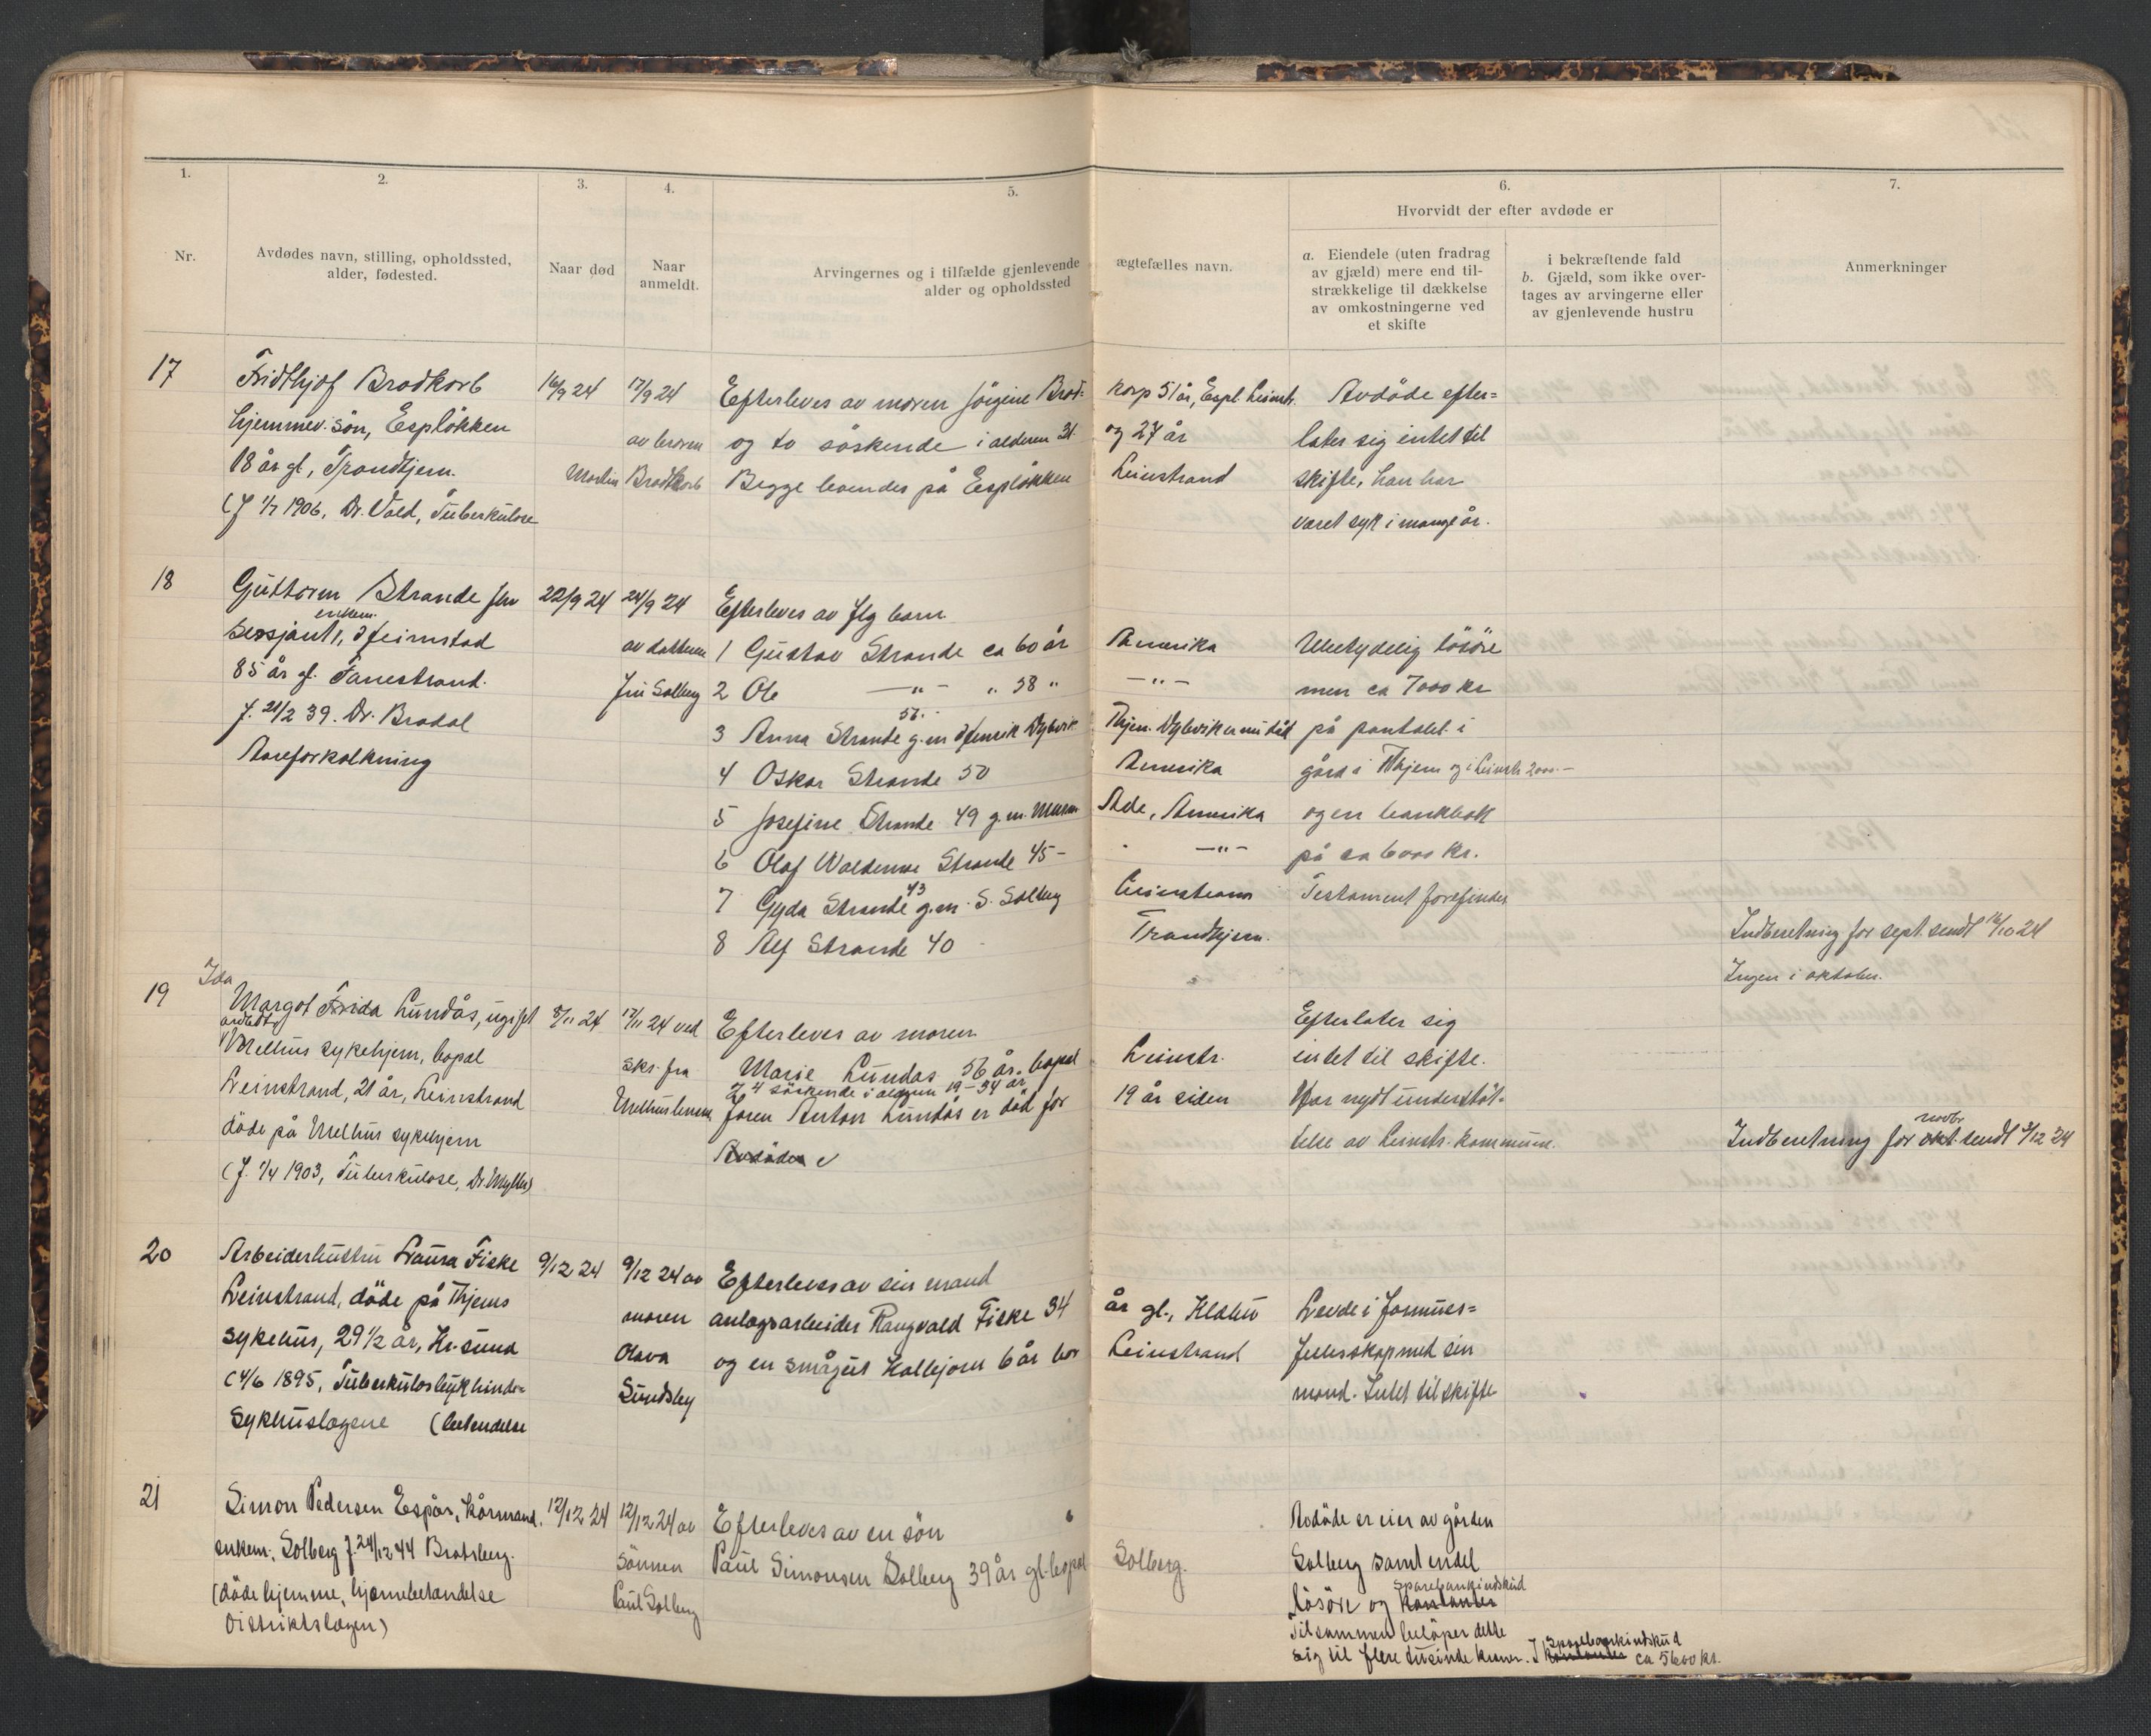 1.
2.
3.
4.
5.
6.
7.
Hvorvidt der efter avdøde er
Nr.
Avdødes navn, stilling, opholdssted,
alder, fødested.
Naar død
Naar
anmeldt.
Arvingernes og i tilfælde gjenlevende
alder og opholdssted
ægtefælles navn.
a. Eiendele (uten fradrag
av gjæld) mere end til-
strækkelige til dækkelse
av omkostningerne ved
et skifte
i bekræftende fald
b. Gjæld, som ikke over-
tages av arvingerne eller
av gjenlevende hustru
Anmerkninger
17
Fridthjof Brodkorb
hjemmev. sön, Esplökken
18 år gl, Trondhjem.
(f 1/7 1906, Dr. Vold, Tuberkulose
16/9 24
17/9 24
av broren
Martin Brodkorb
Efterleves av moren Jörgine Brod-
og to söskende i alderen 31
Begge boendes på Esplökken
korp 51 år, Espl. Leinstr.
og 27 år
Leinstrand
Avdöde efter=
later sig intet til
skifte, han har
været syk i mange år.
18
Guttorm Strande fhv
enkem.
sersjant, Heimstad
85 år gl. Fanestrand.
f. 21/2 39. Dr. Bradal
Aareforkalkning
22/9 24
24/9 24
av datteren
Fru Solberg
Efterleves av flg barn
1 Gustav Strande ca 60 år
2 Ole —"— " 58 "
56 "
3 Anna Strande g.m Henrik Dybvik
4 Oskar Strande 50
5 Josefine Strande 49 g.m.
6 Olaf Waldemar Strande 45 –
43
7 Gyda Strande g.m. S. Solberg
8 Alf Strande 40
Amerika
—"—
Thjem. Dybvik er nu död
Amerika
Ade, Amerika
—"—
Leinstrand
Trondhjem.
Ubetydelig lösöre
men ca 7000 kr
på pantobl. i
gård i Thjem og i Leinstr 2000.–
og en bankbok
på ca 6000 kr.
Testament forefindes
Indberetning for sept. sendt 16/10 24
Ingen i oktober.
19
Ida
Margot Frida Lundås, ugift
arbeidt.
Melhus sykehjem, bopal
Leinstrand, 21 år, Leinstrand
döde på Melhus sykehjem
(f. 1/4 1903, Tuberkulose, Dr.
8/11 24
17/11 24 ved
skr. fra
Melhus lensm.
Efterleves av moren
Marie Lundås 56 år. bopal
& 4 söskende i alderen 19–34 år
Faren Anton Lundås er död for
Avdöde
Leinstr.
19 år siden
Efterlater sig
intet til skifte.
Har nydt understöt-
telse av Leinstr. kommune.
novbr.
Indberetning for okt. sendt 3/12 24
20
Arbeiderhustru Laura Fiske
Leinstrand, döde på Thjems
sykehus, 29 1/2 år, Kr.sund
(4/6 1895, Tuberkulos hjernehinde-
Sykhuslægene (betendelse
9/12 24
9/12 24 av
moren
Olava
Sundsby
Efterleves av sin mand
anlægsarbeider Rangvald Fiske 34
og en smågut Hallbjorn 6 år bor
år gl., Klebu
Leinstrand
Levde i formues=
fellesskap med sin
mand. Intet til skifte
21
Simon Pedersen Espås, kårmand.
enkem. Solberg f. 24/12 44 Bratsberg.
(döde hjemme, hjernebetendelse
Distriktslægen)
12/12 24
12/12 24 av
Sönnen
Paul Solberg
Efterleves av en sön
Paul Simonsen Solberg 39 år gl. bopal
Solberg.
Avdöde er eier av gården
Solberg samt endel
Sparebankindskud
lösöre og kontanter
Tilsammen belöper dette
sig til flere tusinde kroner. I kontanter ca 5600 kr.
Sparebankindskud